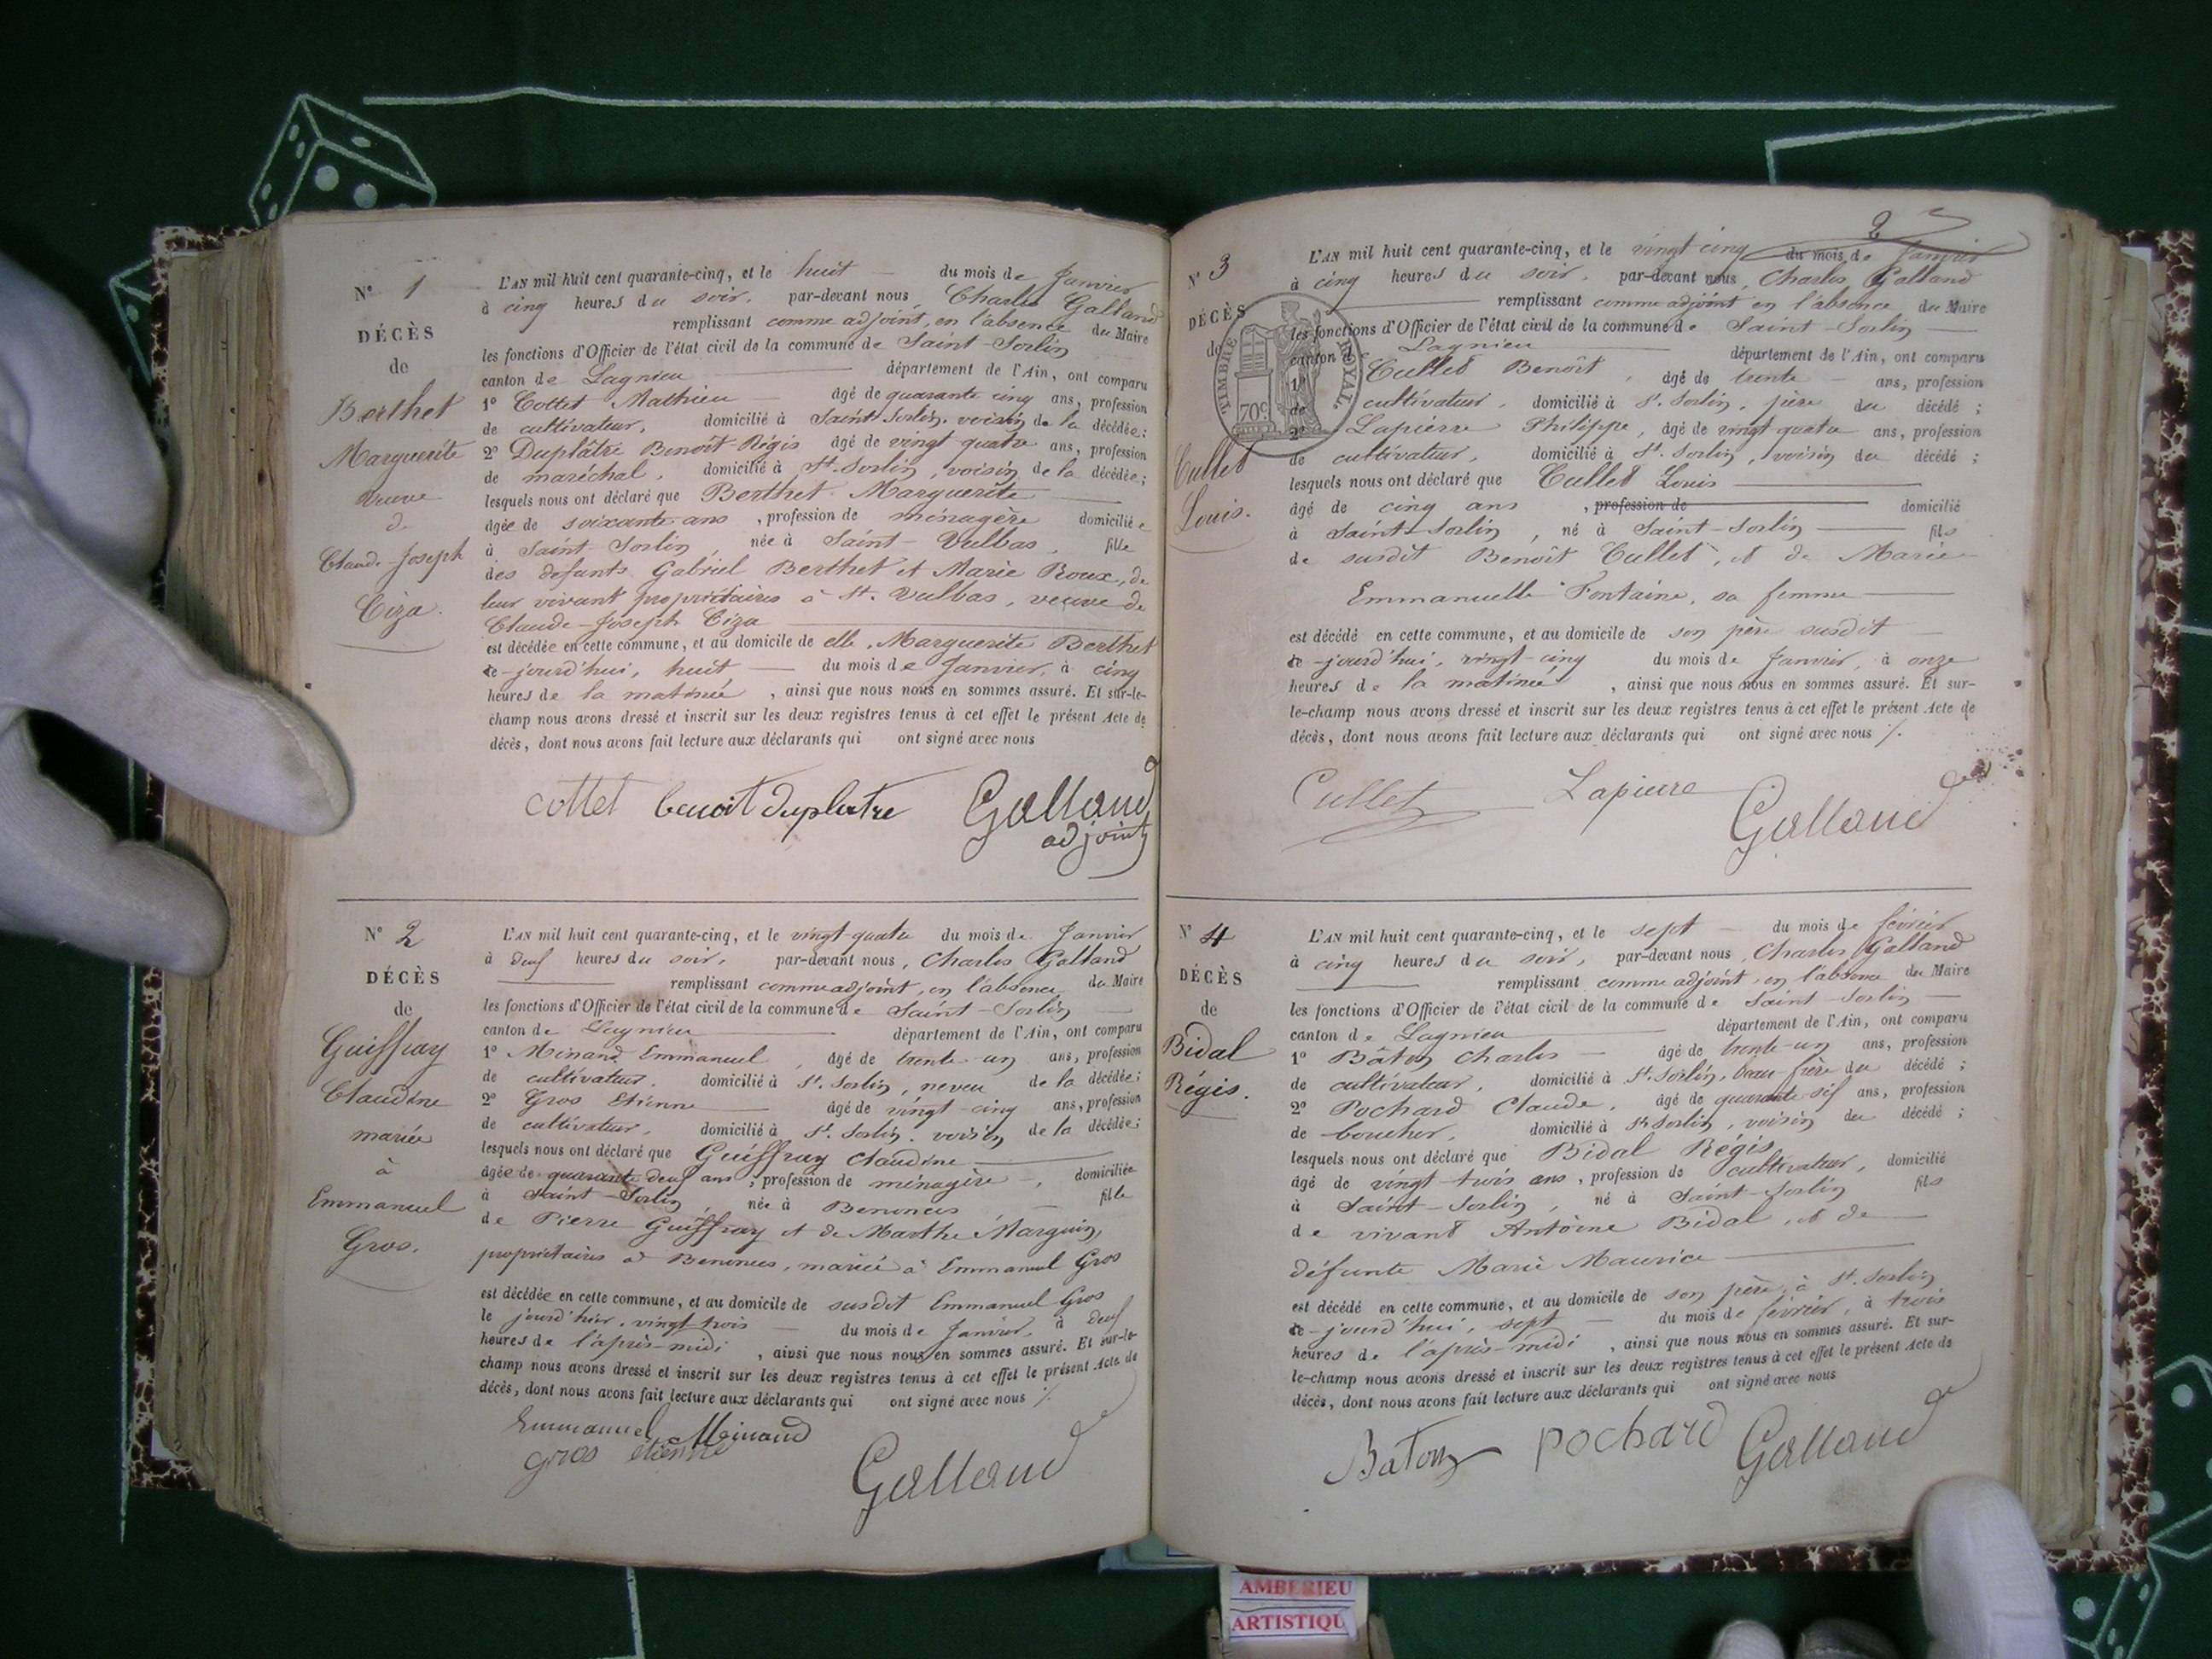 N° 1
DÉCÈS
de
Berthet
Marguerite
veuve
de
Claude-Joseph
Ciza.
L'AN mil huit cent quarante-cinq, et le huit du mois de Janvier
à cinq heures du soir, par-devant nous, Charles Galland
remplissant comme adjoint, en l'absence du Maire
les fonctions d'Officier de l'état civil de la commune de Saint-Sorlin
canton de Lagnieu département de l'Ain, ont comparu
1° Cottet Mathieu âgé de quarante cinq ans, profession
de cultivateur, domicilié à Saint Sorlin, voisin de la décédée;
2° Duplâtre Benoît-Régis âgé de vingt-quatre ans, profession
de maréchal, domicilié à St. Sorlin, voisin de la décédée;
lesquels nous ont déclaré que Berthet Marguerite
âgée de soixante ans, profession de ménagère domiciliée
à Saint-Sorlin, née à Saint-Vulbas, fille
des défunts Gabriel Berthet et Marie Roux, de
leur vivant propriétaires à St. Vulbas, veuve de
Claude-Joseph Ciza
est décédée en cette commune, et au domicile de elle, Marguerite Berthet
ce-jourd'hui, huit du mois de Janvier, à cinq
heures de la matinée, ainsi que nous nous en sommes assuré. Et sur-le-
champ nous avons dressé et inscrit sur les deux registres tenus à cet effet le présent Acte de
décès, dont nous avons fait lecture aux déclarants qui ont signé avec nous
cottet benoit duplatre Galland
adjoint
N° 2
DÉCÈS
de
Guiffray
Claudine
mariée
à
Emmanuel
Gros.
L'AN mil huit cent quarante-cinq, et le vingt-quatre du mois de Janvier
à deux heures du soir, par-devant nous, Charles Galland
remplissant comme adjoint, en l'absence du Maire
les fonctions d'Officier de l'état civil de la commune de Saint-Sorlin
canton de Lagnieu département de l'Ain, ont comparu
1° Minand Emmanuel, âgé de trente-un ans, profession
de cultivateur, domicilié à St. Sorlin, neveu de la décédée;
2° Gros Etienne âgé de vingt-cinq ans, profession
de cultivateur, domicilié à St. Sorlin, voisin de la décédée;
lesquels nous ont déclaré que Guiffray Claudine
âgée de quarante deux ans, profession de ménagère, domiciliée
à Saint-Sorlin, née à Benonces fille
de Pierre Guiffray et de Marthe Marguin,
propriétaires à Benonces, mariée à Emmanuel Gros
est décédée en cette commune, et au domicile de susdit Emmanuel Gros
le jourd'hier, vingt-trois du mois de Janvier, à deux
heures de l'après-midi, ainsi que nous nous en sommes assuré. Et sur-le-
champ nous avons dressé et inscrit sur les deux registres tenus à cet effet le présent Acte de
décès, dont nous avons fait lecture aux déclarants qui ont signé avec nous ./.
Emmanuel Minand
gros etienne
Galland
2
N° 3
DÉCÈS
de
Cullet
Louis.
TIMBRE ROYAL.
70c
L'AN mil huit cent quarante-cinq, et le vingt cinq du mois de Janvier
à cinq heures du soir, par-devant nous, Charles Galland
remplissant comme adjoint en l'absence du Maire
les fonctions d'Officier de l'état civil de la commune de Saint-Sorlin
canton de Lagnieu département de l'Ain, ont comparu
1° Cullet Benoît, âgé de trente ans, profession
de cultivateur, domicilié à St. Sorlin, père du décédé;
2° Lapierre Philippe, âgé de vingt quatre ans, profession
de cultivateur, domicilié à St. Sorlin, voisin du décédé;
lesquels nous ont déclaré que Cullet Louis
âgé de cinq ans, profession de domicilié
à Saint-Sorlin, né à Saint-Sorlin fils
de susdit Benoît Cullet, et de Marie
Emmanuelle Fontaine, sa femme
est décédé en cette commune, et au domicile de son père susdit
ce-jourd'hui, vingt-cinq du mois de Janvier, à onze
heures de la matinée, ainsi que nous nous en sommes assuré. Et sur-
le-champ nous avons dressé et inscrit sur les deux registres tenus à cet effet le présent Acte de
décès, dont nous avons fait lecture aux déclarants qui ont signé avec nous ./.
Cullet Lapierre Galland
N° 4
DÉCÈS
de
Bidal
Régis.
L'AN mil huit cent quarante-cinq, et le sept du mois de février
à cinq heures du soir, par-devant nous, Charles Galland
remplissant comme adjoint, en l'absence du Maire
les fonctions d'Officier de l'état civil de la commune de Saint-Sorlin
canton de Lagnieu département de l'Ain, ont comparu
1° Bâton Charles âgé de trente-un ans, profession
de cultivateur, domicilié à St. Sorlin, beau-frère du décédé;
2° Pochard Claude, âgé de quarante six ans, profession
de boucher, domicilié à St. Sorlin, voisin du décédé;
lesquels nous ont déclaré que Bidal Régis
âgé de vingt-trois ans, profession de cultivateur, domicilié
à Saint-Sorlin, né à Saint-Sorlin fils
de vivant Antoine Bidal, et de
défunte Marie Maurice
est décédé en cette commune, et au domicile de son père, à St. Sorlin
ce-jourd'hui, sept du mois de février, à trois
heures de l'après-midi, ainsi que nous nous en sommes assuré. Et sur-
le-champ nous avons dressé et inscrit sur les deux registres tenus à cet effet le présent Acte de
décès, dont nous avons fait lecture aux déclarants qui ont signé avec nous
Baton pochard Galland
AMBERIEU
ARTISTIQU